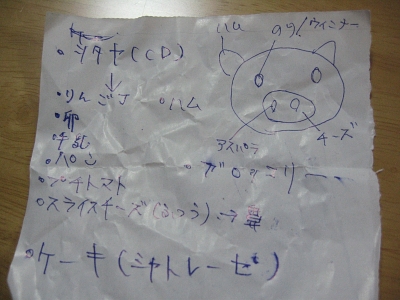 ・シタヤ(CD)
↓
・りんご
・ハム
・卵
・牛乳
・パン
・プチトマト
・スライスチーズ(ふつう)→
・ブロッコリー
・ケーキ(シャトレーゼ)
ハム
のり!ウィンナー
アスパラ
チーズ